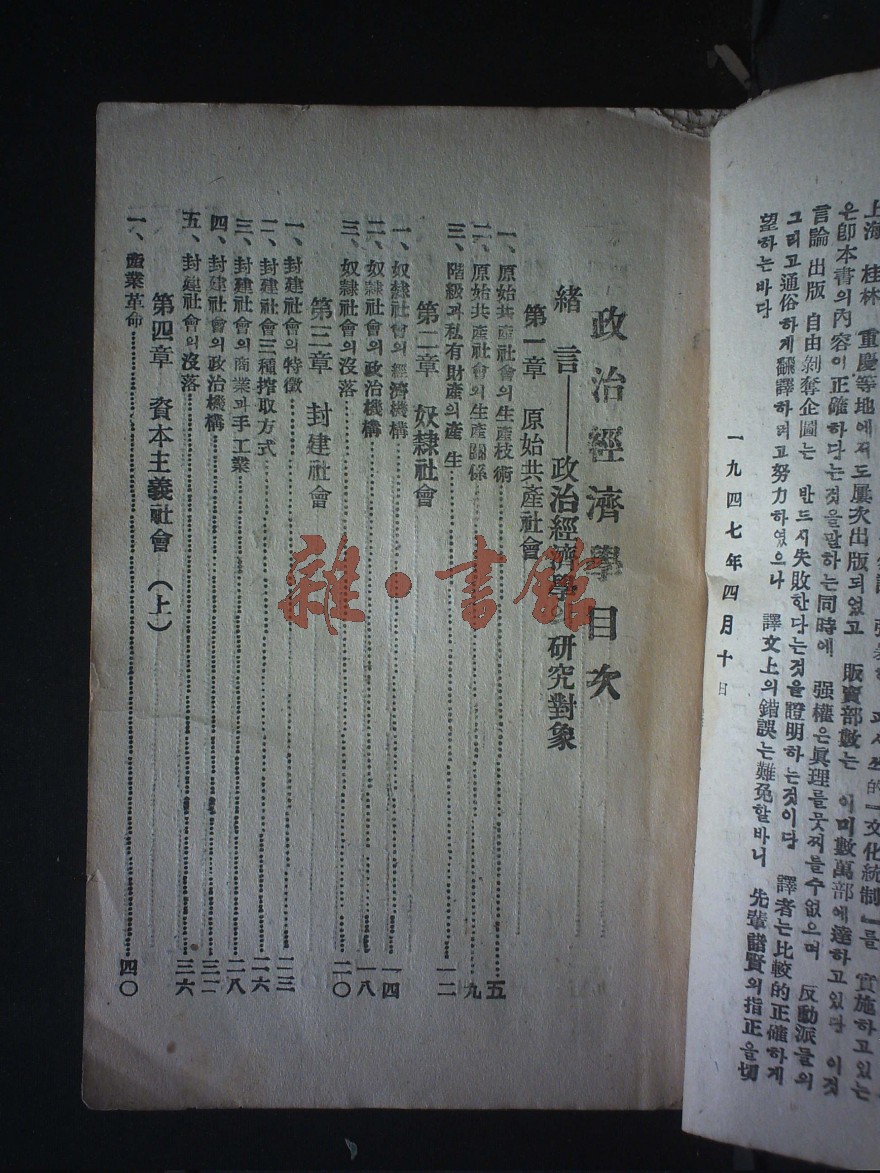 과시쓰的「文化統制」를 實施하고있는
上海 桂林 重慶等地에서도屢次出版되었고 販賣部數는 이미數萬部에達하고있다 이것
은卽本書의內容이正確하다는것을말하는同時에 强權은眞理를못찌를수없으며 反動派들의
言論 出版 自由剝奪企圖는 반드시失敗한다는것을證明하는것이다 譯者는比較的正確하게
그리고通俗하게飜譯하려고努力하였으나 譯文上의錯誤는難免할바니 先輩諸賢의指正을切
望하는바다
一九四七年四月十日
政治經濟學目次
緖言——政治經濟學의硏究對象
第一章 原始共產社會
一、原始共產社會의生產技術……五
二、原始共產社會의生產關係……九
三、階級과私有財產의產生……一二
第二章 奴隷社會
一、奴隷社會의經濟機構……一四
二、奴隷社會의政治機構……一八
三、奴隷社會의沒落……二〇
第三章 封建社會
一、封建社會의特徵……二三
二、封建社會三種搾取方式……二六
三、封建社會의商業과手工業……二八
四、封建社會의政治機構……三二
五、封建社會의沒落……三六
第四章 資本主義社會(上)
一、產業革命……四〇
雜·書館